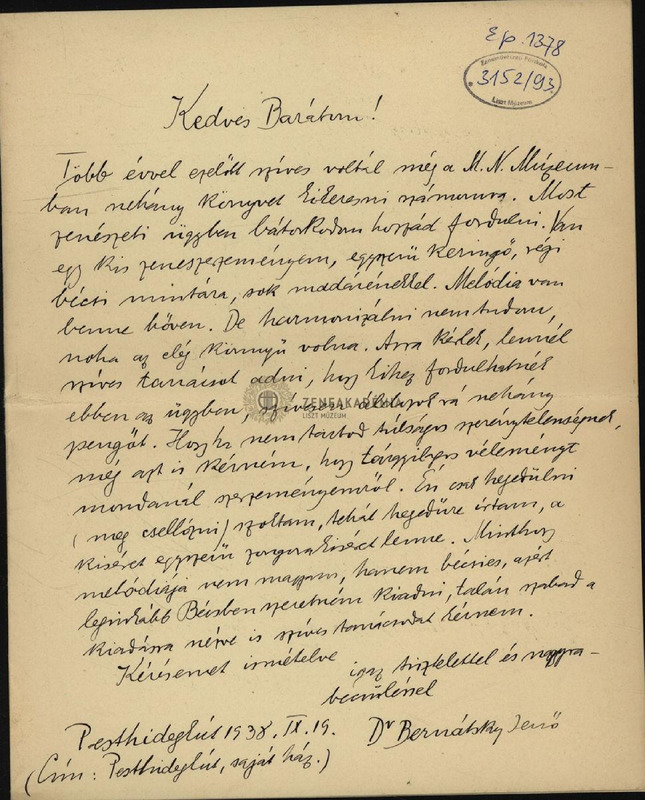 Ep. 1378
Zeneművészeti Főiskola
3152/93
Liszt Múzeum
Kedves Barátom!
Több évvel ezelőtt szíves voltál még a M. N. Múzeum-
ban nehány könyvet kikeresni számomra. Most
zenészeti ügyben bátorkodom hozzád fordulni. Van
egy kis zeneszerzeményem, egyszerű keringő, régi
bécsi mintára, sok madárénekkel. Melódia van
benne bőven. De harmonizálni nem tudom,
noha az elég könnyű volna. Arra kérlek, lennél
szíves tanácsot adni, hogy kihez fordulhatnék
ebben az ügyben, szívesen rá nehány
ZENEAKADÉMIA
LISZT MÚZEUM
pengőt. Hogyha nem tartod túlságos szerénytelenségnek,
még azt is kérném, hogy tárgyilagos véleményt
mondanál szerzeményemről. Én csak hegedülni
(meg csellózni) szoktam, tehát hegedűre írtam, a
kiséret egyszerű zongorakiséret lenne. Minthogy
melódiája nem magyar, hanem bécsies, azért
leginkább Bécsben szeretném kiadni, talán szabad a
kiadásra nézve is szíves tanácsodat kérnem.
Kérésemet ismételve igaz tisztelettel és nagyra-
becsüléssel
Pesthidegkút 1938. IX. 19. Dr Bernátsky Jenő
(Cím: Pesthidegkút, saját ház.)